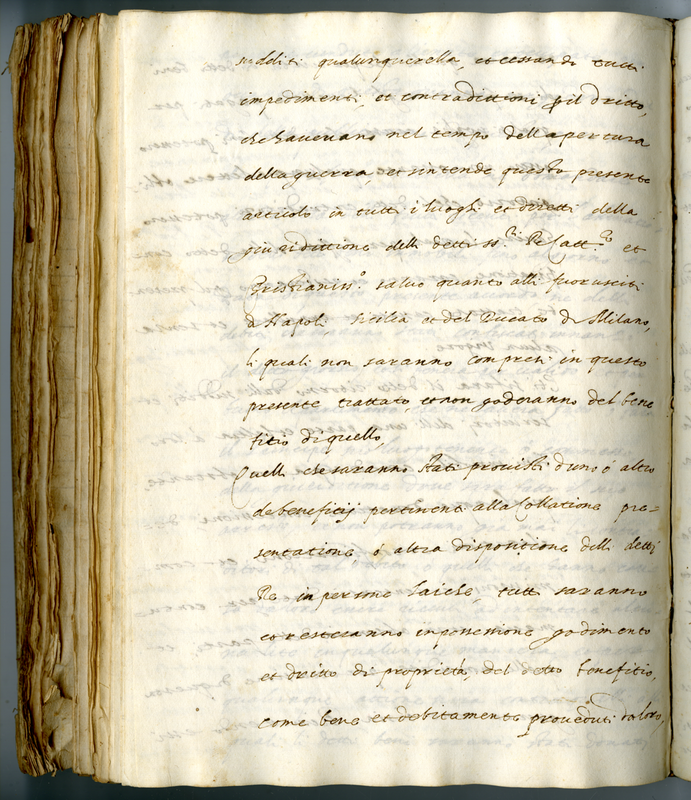 sudditi qualunquerella, et cessando tutti
impedimenti, et contradittioni p il dritto,
che haveuano nel tempo dell apertura
della guerra, et sintende questo presente
articolo in tutti i luoghi et distretti della
giuridittione delli detti ss.ri Re Catt.co et
Cristianiss.o salvo quanto alli fuorusciti
di Napoli Sicilia et del Ducato di Milano,
li quali non saranno compresi in questo
presente trattato et non goderanno del bene
fitio di quello,
Quelli che saranno stati provisti d'uno ó altro
de beneficij pertinenti alla Collatione pre=
sentatione, ó altra dispositione delli detti
Re in persone laiche, tutti saranno
et resteranno in possessione godimento
et dritto di proprietà, del detto benefitio,
come bene et debitamente proueduti da loro,